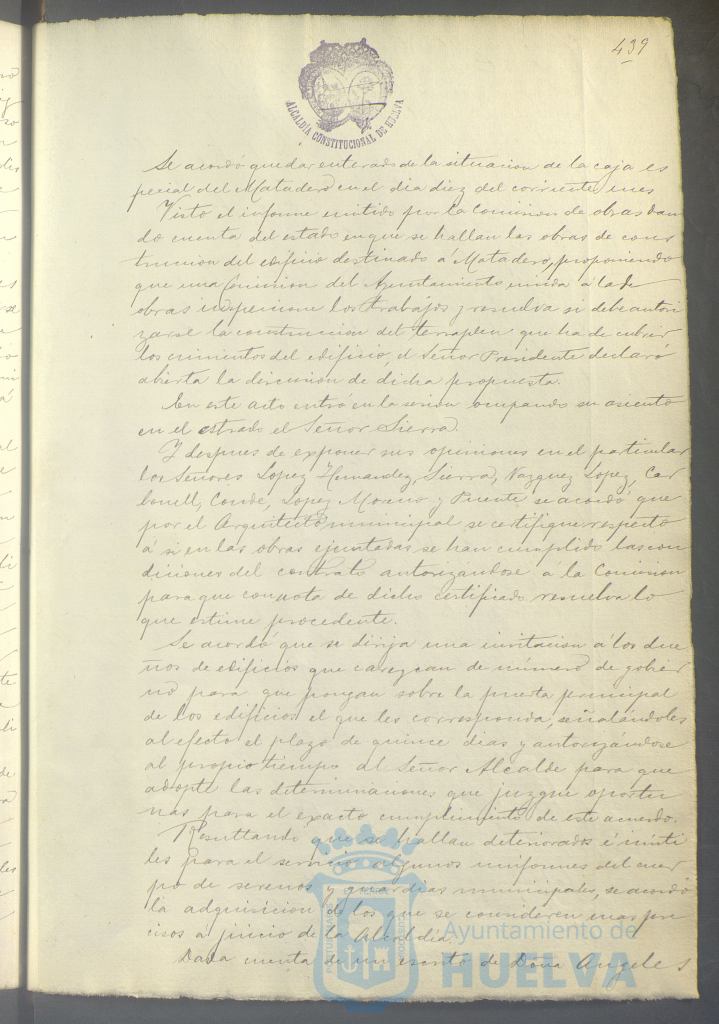 439
ALCALDÍA CONSTITUCIONAL DE HUELVA
Se acordó quedar enterado de la situacion de la caja es
pecial del Matadero en el dia diez del corriente mes
Visto el informe emitido por la Comision de obras dan
do cuenta del estado en que se hallan las obras de cons
truccion del edificio destinado á Matadero, proponiendo
que una Comision del Ayuntamiento unida á la de
obras inspeccione los trabajos y resuelva si debe autori
zarse la construccion del terraplen que ha de cubrir
los cimientos del edificio, el Señor Presidente declaró
abierta la discusion de dicha propuesta.
En este acto entró en la sesion ocupando su asiento
en el estrado el Señor Sierra.
Y despues de exponer sus opiniones en el particular
los Señores Lopez Hernandez, Sierra, Vazquez Lopez, Car
bonell, Conde, Lopez Moreno y Puente se acordó que
por el Arquitecto municipal se certifique respecto
á si en las obras ejecutadas se han cumplido las con
diciones del contrato autorizándose á la Comision
para que con nota de dicho certificado resuelva lo
que estime procedente.
Se acordó que se dirija una invitacion á los due
ños de edificios que carezcan de número de gobier
no para que pongan sobre la puerta principal
de los edificios el que les corresponda, señalándoles
al efecto el plazo de quince dias y autorizándose
al propio tiempo al Señor Alcalde para que
adopte las determinaciones que juzgue oportu
nas para el exacto cumplimiento de este acuerdo.
Resultando que se hallan deteriorados é inúti
les para el servicio algunos uniformes del cuer
po de serenos y guardias municipales, se acordó
la adquisicion de los que se consideren mas pre
cisos a juicio de la Alcaldía.
Dada cuenta de un escrito de Doña Angeles
Ayuntamiento de
HUELVA